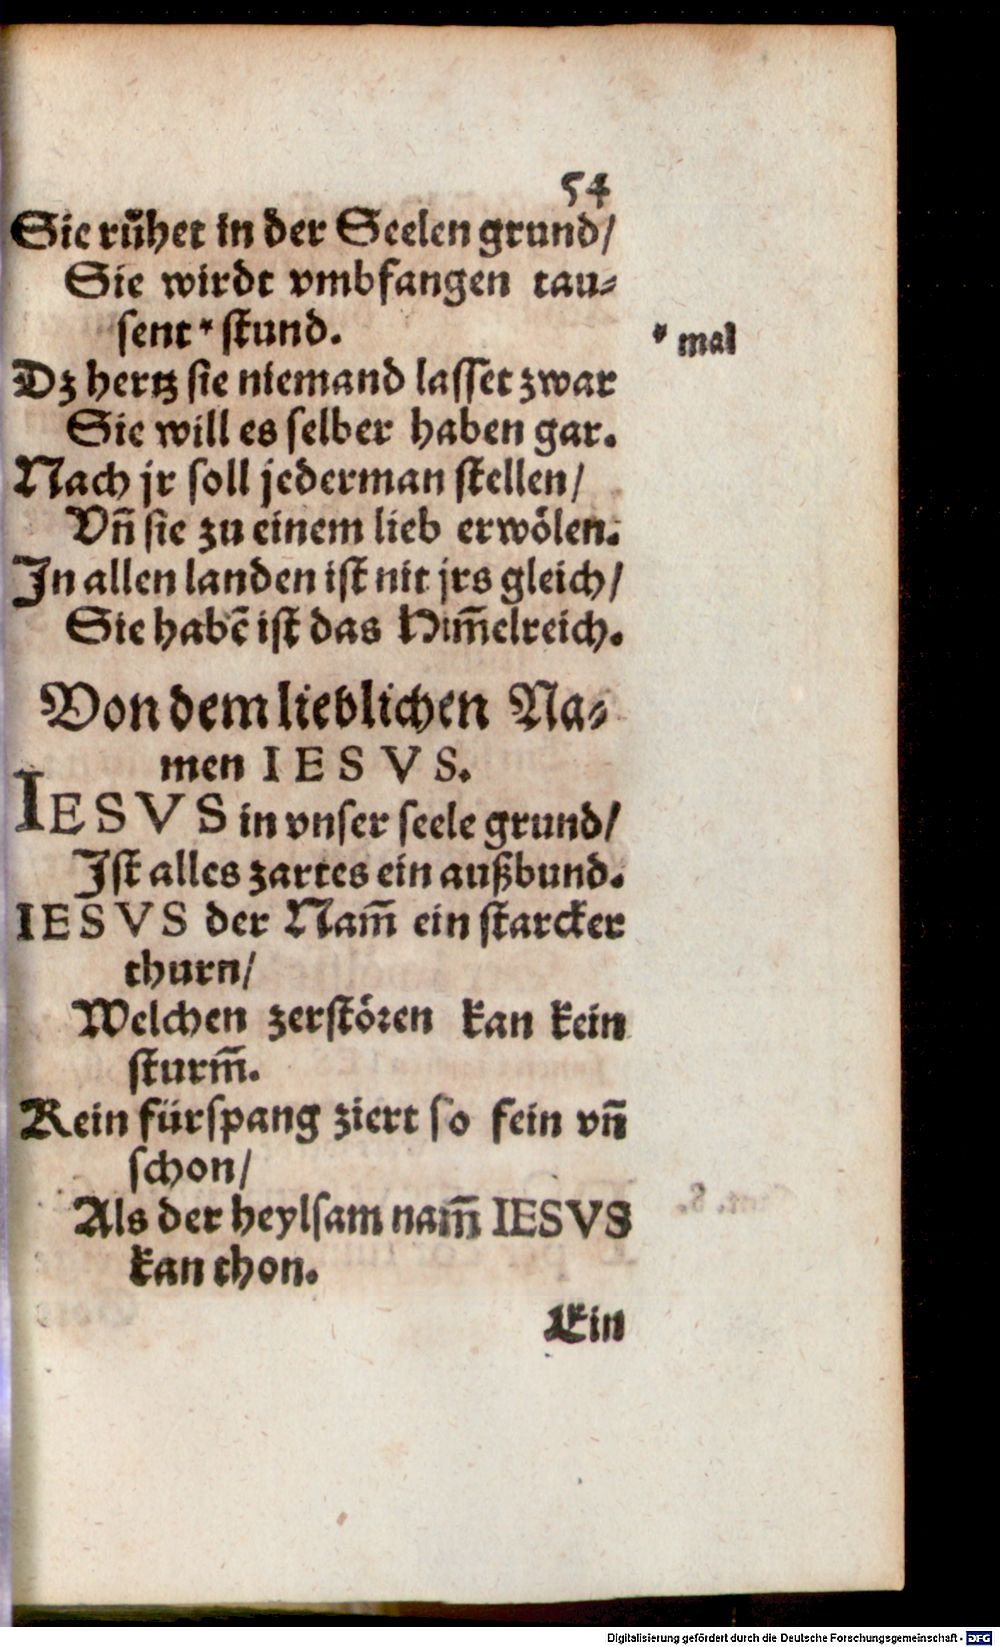 54
Sie růhet in der Seelen grund/
Sie wirdt vmbfangen tau⸗
sent * stund.
* mal
Dz hertz sie niemand lasset zwar
Sie will es selber haben gar.
Nach jr soll jederman stellen/
Vñ sie zu einem lieb erwölen.
In allen landen ist nit jrs gleich/
Sie habẽ ist das Him̃elreich.
Von dem lieblichen Na⸗
men IESVS.
IESVS in vnser seele grund/
Ist alles zartes ein außbund.
IESVS der Nam̃ ein starcker
thurn/
Welchen zerstören kan kein
sturm̃.
Kein fürspang ziert so fein vñ
schon/
Als der heylsam nam̃ IESVS
kan thon.
Ein
Digitalisierung gefördert durch die Deutsche Forschungsgemeinschaft - DFG